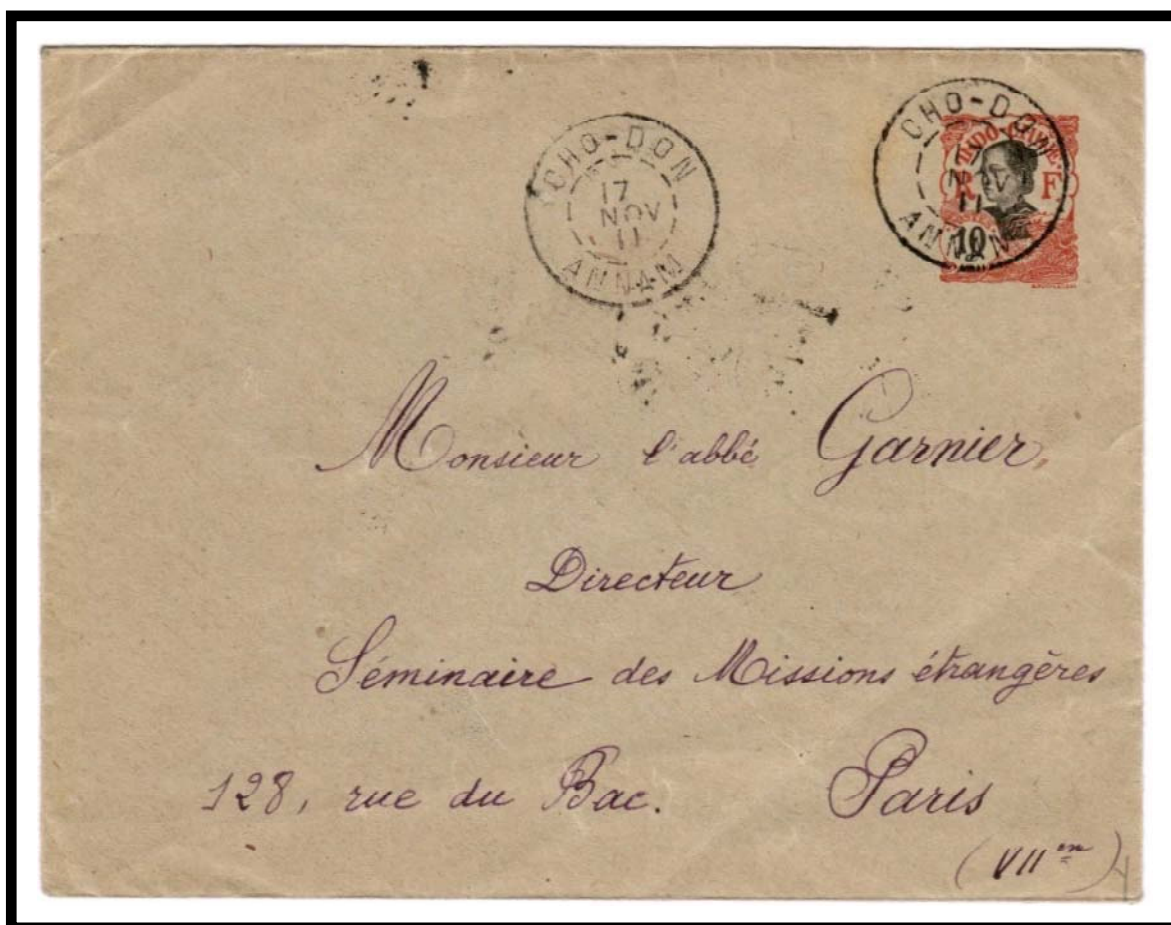 CHO-DON
17
NOV
11
ANNAM
CHO-DON
17
NOV
11
ANNAM
INDO-CHINE
R F
10
Monsieur l'abbé Garnier,
Directeur
Séminaire des Missions étrangères
128, rue du Bac. Paris
(VIIème)